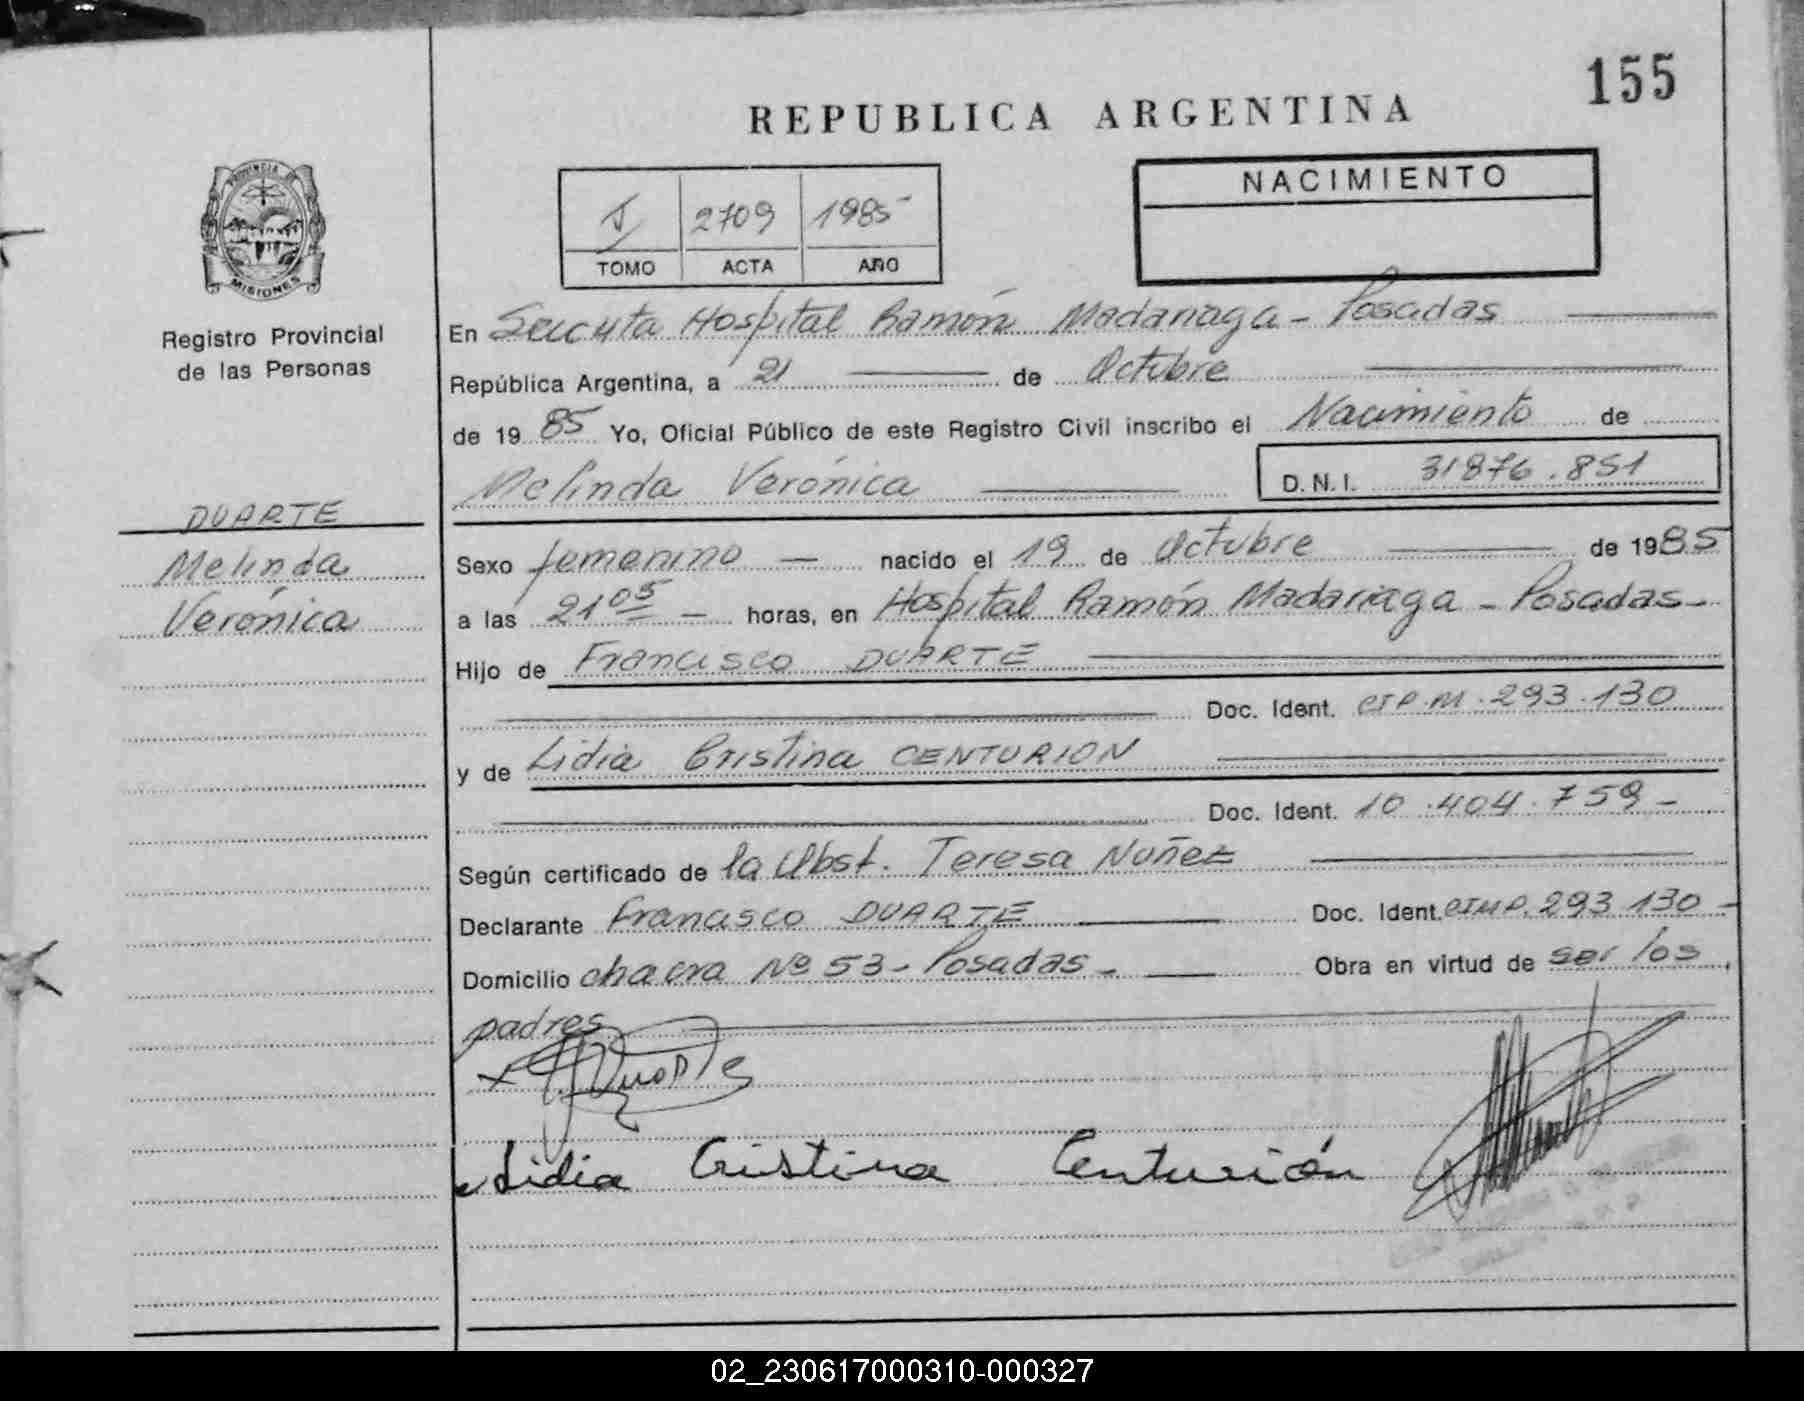 155
REPUBLICA ARGENTINA
PROVINCIA DE
MISIONES
2709 1985
TOMO ACTA AÑO
NACIMIENTO
Registro Provincial
de las Personas
En Hospital Ramón Madariaga - Posadas
República Argentina, a 21 de Octubre
de 1985 Yo, Oficial Público de este Registro Civil inscribo el Nacimiento de
Melinda Verónica D.N.I. 31876.851
DUARTE
Melinda
Verónica
Sexo femenino - nacido el 19 de Octubre de 1985
a las 21 05 - horas, en Hospital Ramón Madariaga - Posadas -
Hijo de Francisco DUARTE
Doc. Ident. CIP.M. 293.130
y de Lidia Cristina CENTURION
Doc. Ident. 10.404.759 -
Según certificado de la Obst. Teresa Nuñez
Declarante Francisco DUARTE Doc. Ident. CIMP. 293.130 -
Domicilio chacra Nº 53 - Posadas - Obra en virtud de ser los
padres
Duarte
Lidia Cristina Centurión
02_230617000310-000327